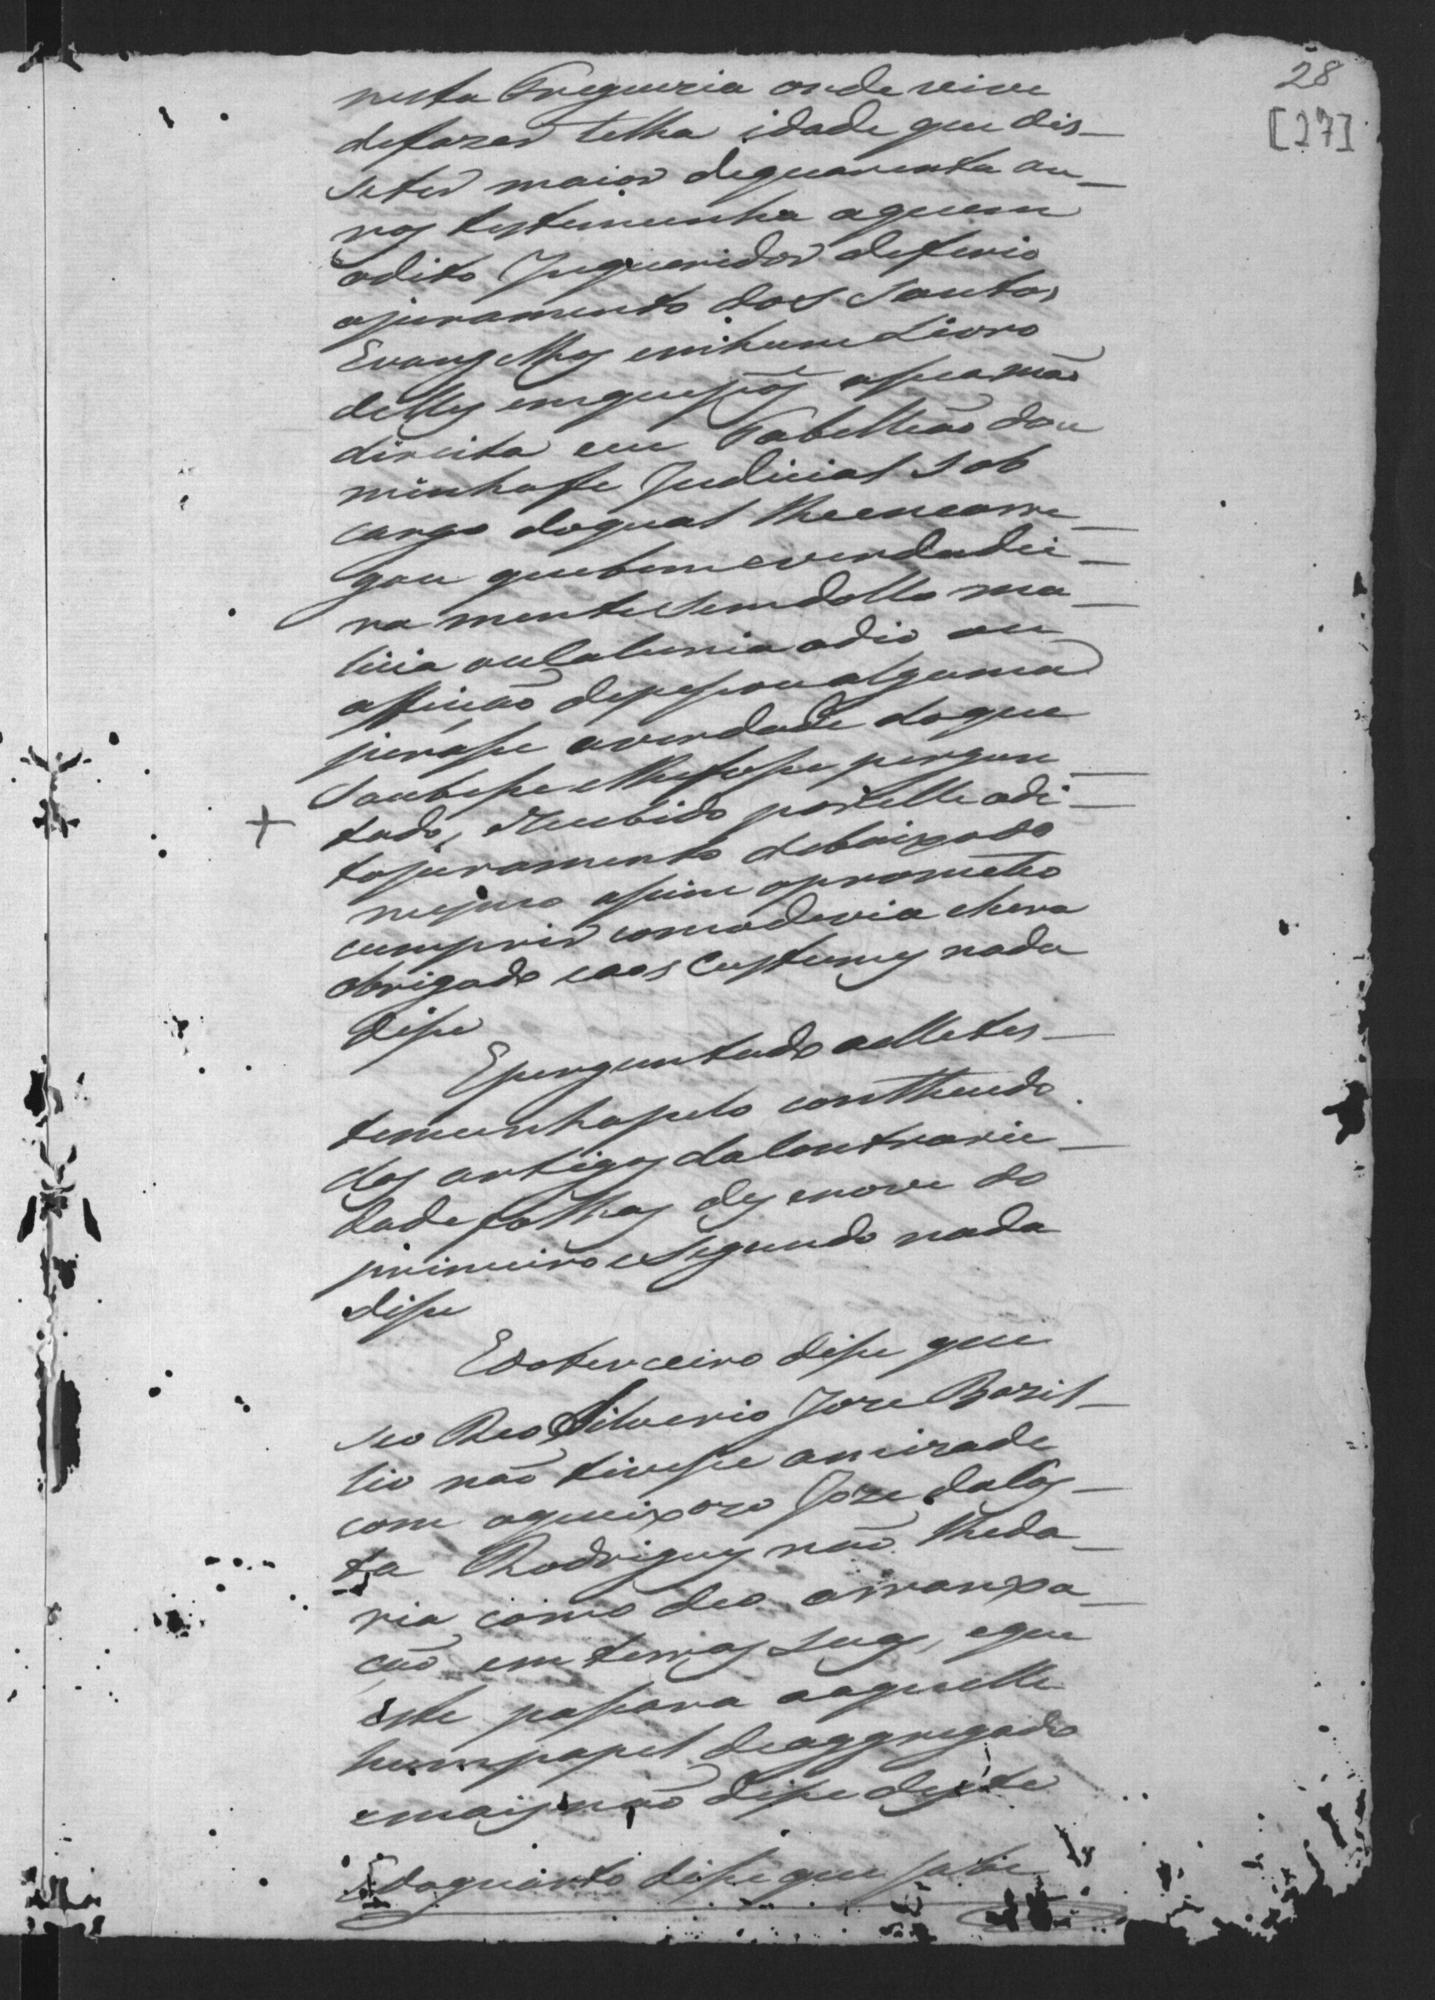 28
[27]
nesta Freguezia onde vive
defazer telha idade que dis-
seter maior dequarenta an-
nos testemunha aquem
odito Inqueridor deferio
ojuramento dos Santos
Evangelhos emhum Livro
delles emquepós asuamão
direita eeu Tabellião dou
minhafe Judicial Sob
cargo doqual lheencarre-
gou quebem everdadei-
ra mente semdollo ma-
licia oucalunia odio ou
affeicão depessoa alguma
jurasse averdade doque
Soubesse elhefosse pergun-
tado, eRecebido porelle odi-
tojuramento debaixodo
mesmo assim oprometeo
cumprir comodevia ehera
obrigado eaos Custumes nada
disse
Eperguntado aelletes-
temunhapelo contheudo
dos artigos daContrarie-
dadefolhas dezenove do
primeiro esegundo nada
disse
Edoterceiro disse que
seo Reo Silverio Joze Bazil-
lio não tivesse amizade
com oqueixozo Joze daCos-
ta Rodrigues não lheda-
ria como deo arranxa-
cão em terras suas, eque
este passara aaquelle
humpapel deaggregado
emaisnão disse deste
Edoquarto disse que sabe